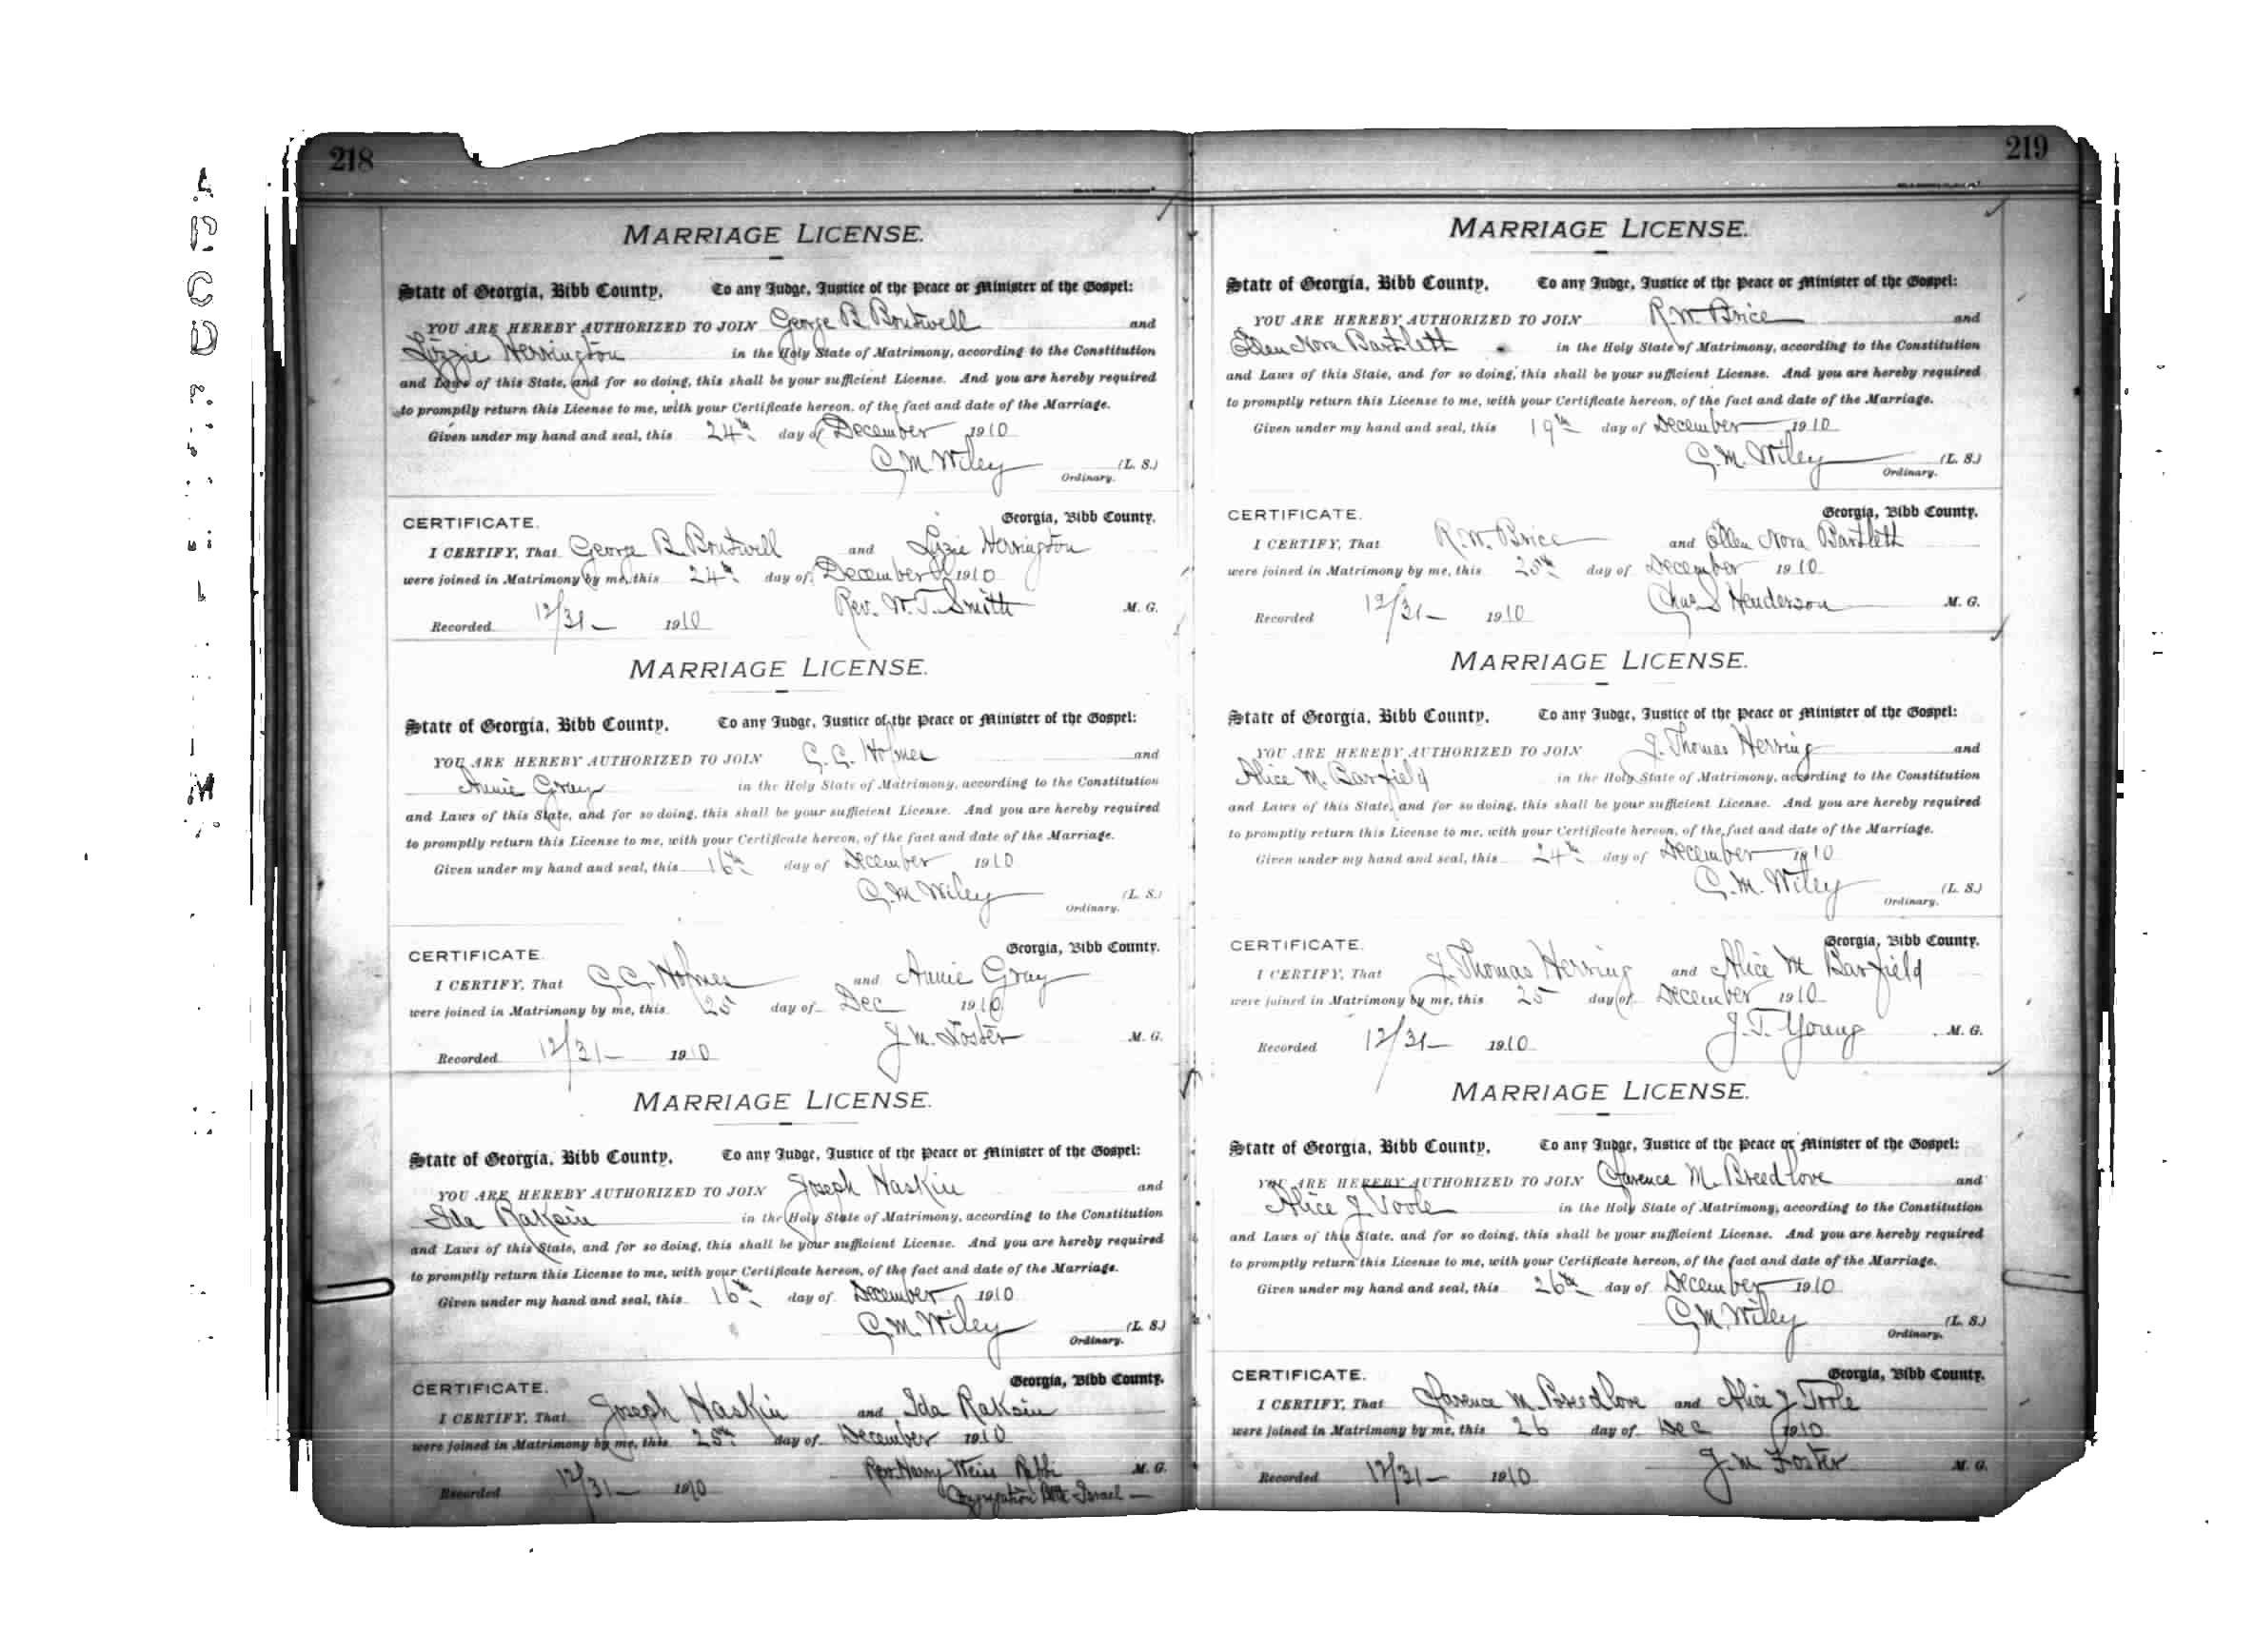 218
MARRIAGE LICENSE.
State of Georgia, Bibb County. To any Judge, Justice of the Peace or Minister of the Gospel:
YOU ARE HEREBY AUTHORIZED TO JOIN George B Boutwell and
Lizzie Herrington in the Holy State of Matrimony, according to the Constitution
and Laws of this State, and for so doing, this shall be your sufficient License. And you are hereby required
to promptly return this License to me, with your Certificate hereon, of the fact and date of the Marriage.
Given under my hand and seal, this 24th day of December 1910
C. M. Wiley (L. S.)
Ordinary.
CERTIFICATE. Georgia, Bibb County.
I CERTIFY, That George B Boutwell and Lizzie Herrington
were joined in Matrimony by me, this 24th day of December 1910
Rev. W. T. Smith M. G.
Recorded 12/31 1910
MARRIAGE LICENSE.
State of Georgia, Bibb County. To any Judge, Justice of the Peace or Minister of the Gospel:
YOU ARE HEREBY AUTHORIZED TO JOIN G. G. Holmes and
Annie Gray in the Holy State of Matrimony, according to the Constitution
and Laws of this State, and for so doing, this shall be your sufficient License. And you are hereby required
to promptly return this License to me, with your Certificate hereon, of the fact and date of the Marriage.
Given under my hand and seal, this 16th day of December 1910
C. M. Wiley (L. S.)
Ordinary.
CERTIFICATE. Georgia, Bibb County.
I CERTIFY, That G. G. Holmes and Annie Gray
were joined in Matrimony by me, this 25 day of Dec 1910
J. M. Foster M. G.
Recorded 12/31 1910
MARRIAGE LICENSE.
State of Georgia, Bibb County. To any Judge, Justice of the Peace or Minister of the Gospel:
YOU ARE HEREBY AUTHORIZED TO JOIN Joseph Haskin and
Ida in the Holy State of Matrimony, according to the Constitution
and Laws of this State, and for so doing, this shall be your sufficient License. And you are hereby required
to promptly return this License to me, with your Certificate hereon, of the fact and date of the Marriage.
Given under my hand and seal, this 16th day of December 1910
C. M. Wiley (L. S.)
Ordinary.
CERTIFICATE. Georgia, Bibb County.
I CERTIFY, That Joseph Haskin and Ida
were joined in Matrimony by me, this 25th day of December 1910
Rev. Harry Weiss Rabbi M. G.
Recorded 12/31 1910 Congregation Israel
219
MARRIAGE LICENSE.
State of Georgia, Bibb County. To any Judge, Justice of the Peace or Minister of the Gospel:
YOU ARE HEREBY AUTHORIZED TO JOIN R. W. Brice and
Ellen Nora Bartlett in the Holy State of Matrimony, according to the Constitution
and Laws of this State, and for so doing, this shall be your sufficient License. And you are hereby required
to promptly return this License to me, with your Certificate hereon, of the fact and date of the Marriage.
Given under my hand and seal, this 19th day of December 1910
C. M. Wiley (L. S.)
Ordinary.
CERTIFICATE. Georgia, Bibb County.
I CERTIFY, That R. W. Brice and Ellen Nora Bartlett
were joined in Matrimony by me, this 20th day of December 1910
Chas S Henderson M. G.
Recorded 12/31 1910
MARRIAGE LICENSE.
State of Georgia, Bibb County. To any Judge, Justice of the Peace or Minister of the Gospel:
YOU ARE HEREBY AUTHORIZED TO JOIN J. Thomas Herring and
Alice M. Barfield in the Holy State of Matrimony, according to the Constitution
and Laws of this State, and for so doing, this shall be your sufficient License. And you are hereby required
to promptly return this License to me, with your Certificate hereon, of the fact and date of the Marriage.
Given under my hand and seal, this 24th day of December 1910
C. M. Wiley (L. S.)
Ordinary.
CERTIFICATE. Georgia, Bibb County.
I CERTIFY, That J. Thomas Herring and Alice M Barfield
were joined in Matrimony by me, this 25 day of December 1910
J. T. Young M. G.
Recorded 12/31 1910
MARRIAGE LICENSE.
State of Georgia, Bibb County. To any Judge, Justice of the Peace or Minister of the Gospel:
YOU ARE HEREBY AUTHORIZED TO JOIN Clarence M. Breedlove and
Alice J. Toole in the Holy State of Matrimony, according to the Constitution
and Laws of this State, and for so doing, this shall be your sufficient License. And you are hereby required
to promptly return this License to me, with your Certificate hereon, of the fact and date of the Marriage.
Given under my hand and seal, this 26th day of December 1910
C. M. Wiley (L. S.)
Ordinary.
CERTIFICATE. Georgia, Bibb County.
I CERTIFY, That Clarence M. Breedlove and Alice J Toole
were joined in Matrimony by me, this 26 day of Dec 1910
J. M Foster M. G.
Recorded 12/31 1910